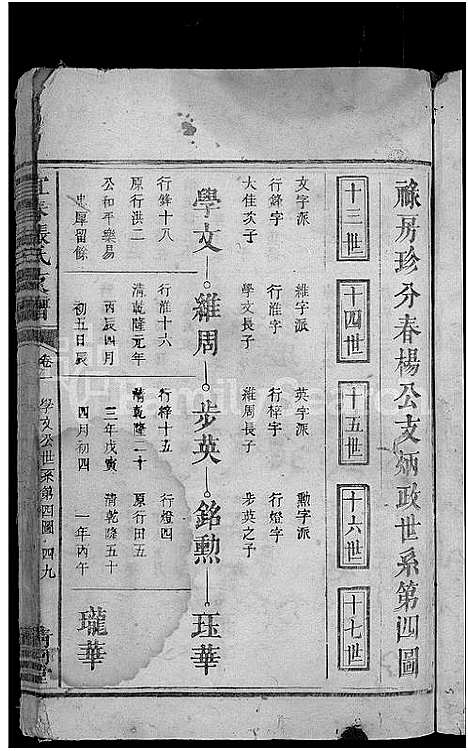 祿房珍分春楊公支炳政世系第四圖
十三世
十四世
十五世
十六世
十七世
文字派
行鋒字
大佳次子
維字派
行淮字
學文長子
英字派
行梓字
維周長子
勲字派
行燈字
步英之子
學文
維周
步英
銘勲
珏華
行鋒十八
原行洪二
公和平樂易
忠厚留餘
行淮十六
清乾隆元年
丙辰四月
初五日辰
行梓十五
清乾隆二十
三年戊寅
四月初四
行燈四
原行田五
清乾隆五十
一年丙午
瓏華
宜春張氏支譜
卷一
學文公世系第四圖
四九
FamilySearch